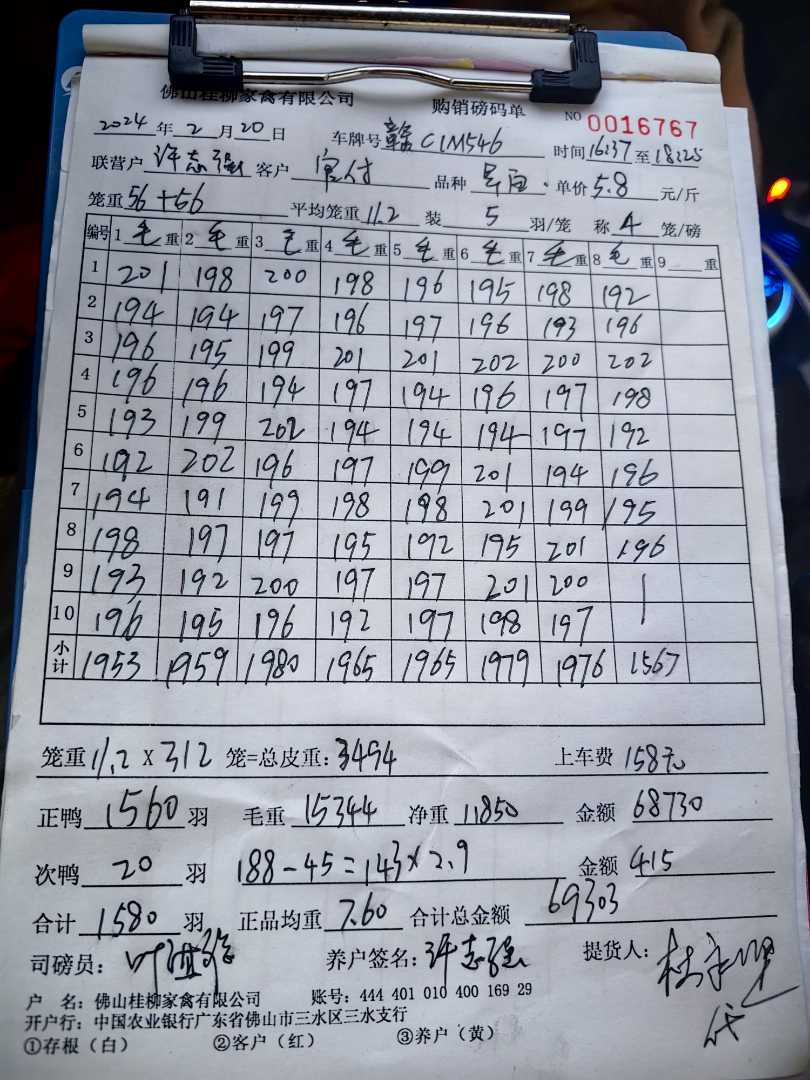 佛山桂柳家禽有限公司 购销磅码单 NO 0016767
2024年2月20日 车牌号 赣C1M546 时间16:37至18:25
联营户 许志强 客户 品种 单价5.8元/斤
笼重56+56 平均笼重11.2装5羽/笼 称4笼/磅
编号 1毛重 2毛重 3毛重 4毛重 5毛重 6毛重 7毛重 8毛重 9重
1 201 198 200 198 196 195 198 192
2 194 194 197 196 197 196 193 196
3 196 195 199 201 201 202 200 202
4 196 196 194 197 194 196 197 198
5 193 199 202 194 194 194 197 192
6 192 202 196 197 199 201 194 196
7 194 191 199 198 198 201 199 195
8 198 197 197 195 192 195 201 196
9 193 192 200 197 197 201 200
10 196 195 196 192 197 198 197
小计 1953 1959 1980 1965 1965 1979 1976 1567
笼重11.2X312笼=总皮重:3494 上车费158元
正鸭1560羽 毛重15344 净重11850 金额68730
次鸭20羽 188-45=143×2.9 金额415
合计1580羽 正品均重7.60 合计总金额69303
司磅员: 养户签名:许志强 提货人:
代
户 名:佛山桂柳家禽有限公司 账号:444 401 010 400 169 29
开户行:中国农业银行广东省佛山市三水区三水支行
①存根(白) ②客户(红) ③养户(黄)